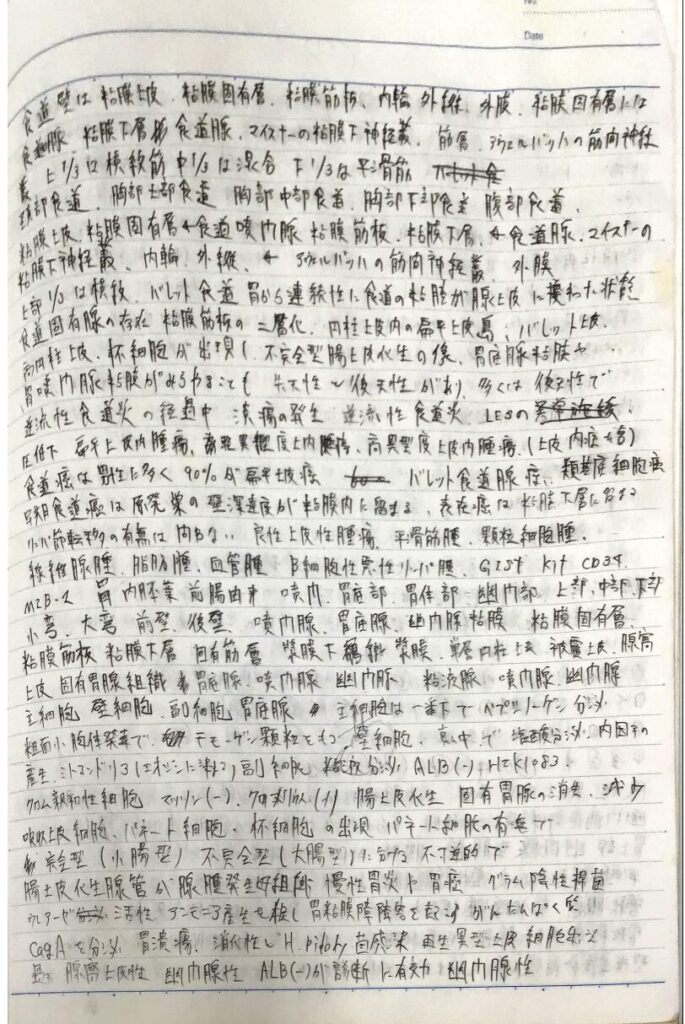 No.
Date
食道壁は 粘膜上皮、粘膜固有層、粘膜筋板、内輪 外縦、外膜、粘膜固有層には
食道腺 粘膜下層 食道腺、マイスナーの粘膜下神経叢、筋層、アウエルバッハの筋間神経
叢 上1/3は横紋筋 中1/3は混合 下1/3は平滑筋
頚部食道、胸部上部食道 胸部中部食道、胸部下部食道 腹部食道、
粘膜上皮、粘膜固有層←食道噴門腺 粘膜筋板、粘膜下層、←食道腺、マイスナーの
粘膜下神経叢、内輪、外縦、← アウエルバッハの筋間神経叢、外膜
上部1/3は横紋、バレット食道 胃から連続性に食道の粘膜が腺上皮に覆われた状態
食道固有腺の存在 粘膜筋板の二層化、円柱上皮内の扁平上皮島、バレット上皮、
円柱上皮、杯細胞が出現し、不完全型腸上皮化生の像、胃底腺粘膜や
胃噴門腺粘膜がみられることも 先天性と後天性があり、多くは後天性で
逆流性食道炎の経過中 潰瘍の発生 逆流性食道炎 LESの
圧低下 扁平上皮内腫瘍、軽度上皮内腫瘍、高異型度上皮内腫瘍、(上皮内癌も含)
食道癌は男性に多く 90%が扁平上皮癌 バレット食道腺癌、類基底細胞癌
早期食道癌は原発巣の壁深達度が粘膜内に留まる、表在癌は粘膜下層に留まる
リンパ節転移の有無は問わない 良性上皮性腫瘍、平滑筋腫、顆粒細胞腫、
線維腺腫、脂肪腫、血管腫 B細胞性悪性リンパ腫、GIST kit CD34、
胃 内胚葉 前腸由来 噴門、胃底部、胃体部 幽門部、上部、中部、下部
小弯、大弯 前壁、後壁 噴門腺、胃底腺、幽門腺粘膜 粘膜固有層、
粘膜筋板 粘膜下層 固有筋層 漿膜下組織 漿膜、単層円柱上皮 被覆上皮、腺窩
上皮 固有胃腺組織 胃底腺、噴門腺 幽門腺 粘液腺、噴門腺、幽門腺
主細胞 壁細胞、副細胞 胃底腺 主細胞は一番下で ペプシノーゲン分泌
粗面小胞体発達で、チモーゲン顆粒をもつ 壁細胞、真中で 塩酸分泌 内因子の
産生、ミトコンドリア(エオジンに染まる) 副細胞 粘液分泌 ALB(-)、HIK1083
クロム親和性細胞 マッソン(-)、グリメリウス(+) 腸上皮化生 固有胃腺の消失、減少
吸収上皮細胞、パネート細胞・杯細胞の出現 パネート細胞の有無で
完全型(小腸型) 不完全型(大腸型)に分ける 不可逆的で
腸上皮化生腺管が腺腫発生好組織 慢性胃炎や胃癌 グラム陰性桿菌
ウレアーゼ 活性 アンモニア産生を起し 胃粘膜障害を起こす がんたんぱく質
CagAを分泌 胃潰瘍、消化性と H. pilory 菌感染 再生異型上皮細胞
腺窩上皮性 幽門腺性 ALB(-)が診断に有効 幽門腺性